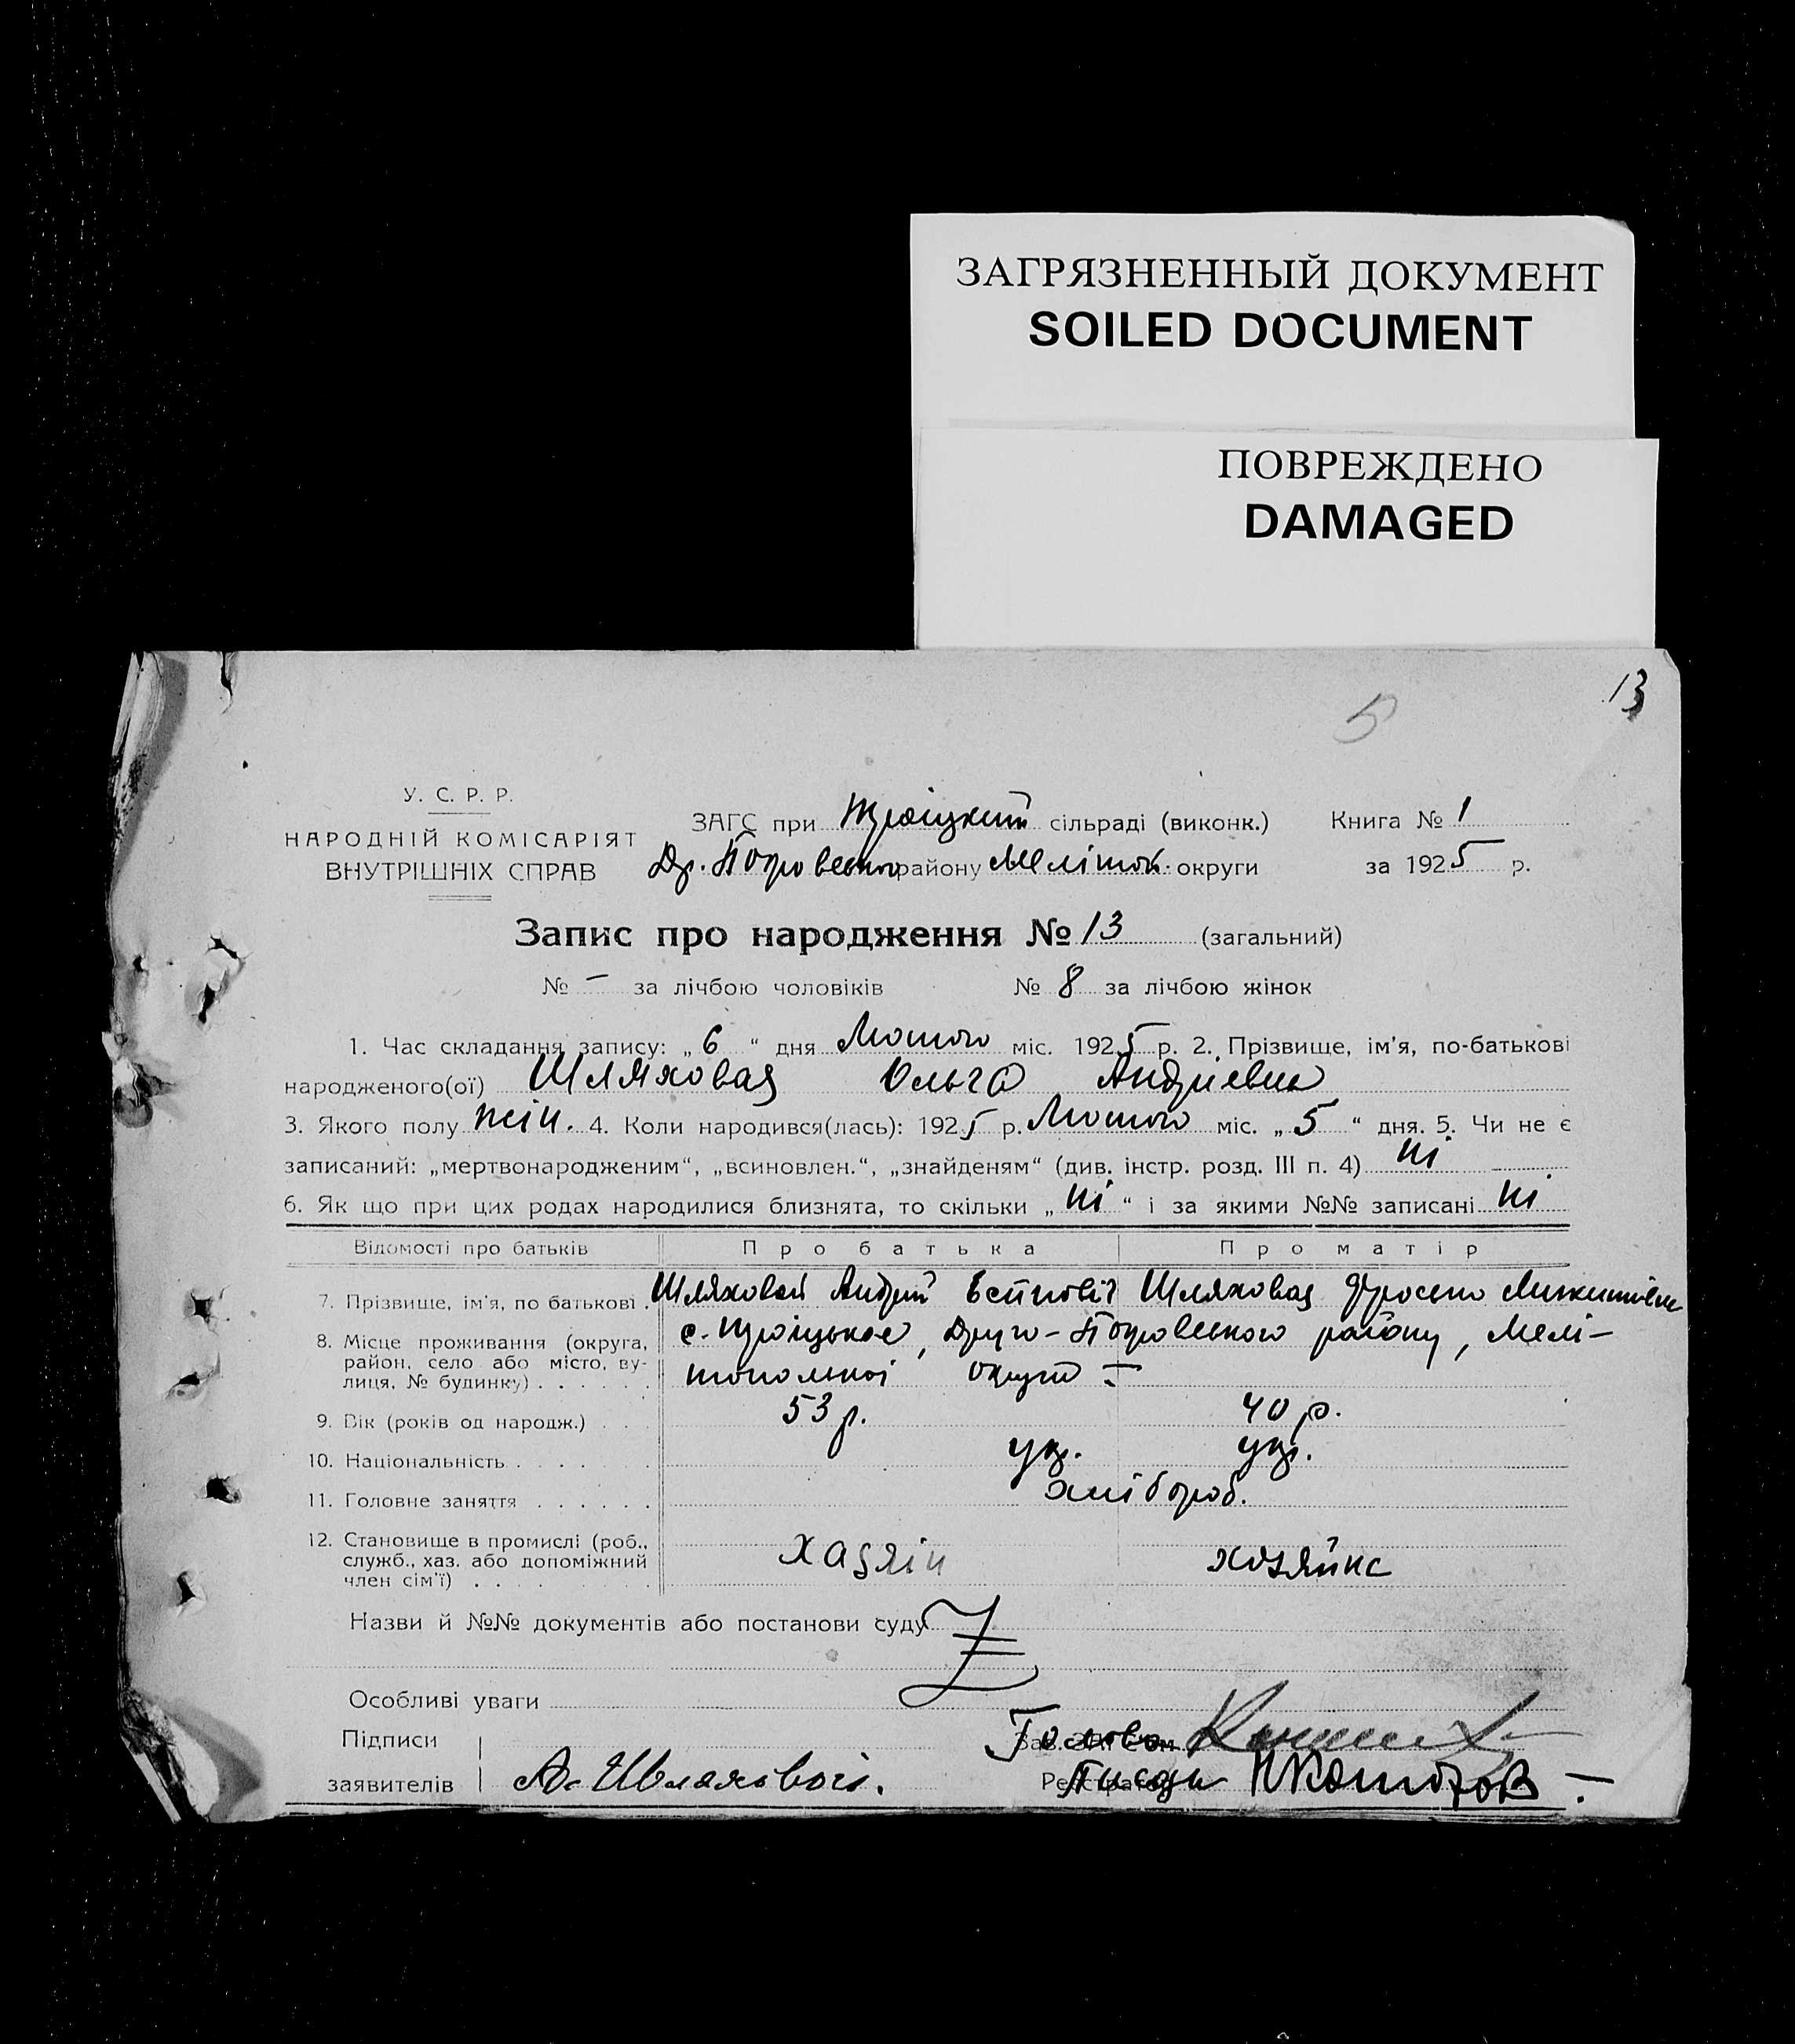 ЗАГРЯЗНЕННЫЙ ДОКУМЕНТ
SOILED DOCUMENT
ПОВРЕЖДЕНО
DAMAGED
13
5
У. С. Р. Р.
НАРОДНІЙ КОМІСАРІЯТ
ВНУТРІШНІХ СПРАВ
ЗАГС при Троіцкий сільраді (виконк.) Книга № 1
Др. Покровського району Меліток. округи за 1925 р.
Запис про народження № 13 (загальний)
№ – за лічбою чоловіків № 8 за лічбою жінок
1. Час складання запису: „ 6 “ дня Лютого міс. 1925 р. 2. Прізвище, ім'я, по-батькові
народженого(ої) Шляховая Ольга Андрієвна
3. Якого полу жін. 4. Коли народився(лась): 1925 р. Лютого міс. „ 5 “ дня. 5. Чи не є
записаний: „мертвонародженим“, „всиновлен.“, „знайденям“ (див. інстр. розд. III п. 4) ні
6. Як що при цих родах народилися близнята, то скільки „ ні “ і за якими №№ записані ні
Відомості про батьків Про батька Про матір
7. Прізвище, ім'я, по батькові . Шляховой Андрий Шляховая Фросына
8. Місце проживання (округа, район, село або місто, вулиця, № будинку) . . . . . . с. Троіцькое, Друго-Покровського району, Мелі-
топольскої округи –
9. Вік (років од народж.) . . . 53 р. 40 р.
10. Національність . . . . . . . укр. укр.
11. Головне заняття . . . . . . хлібороб.
12. Становище в промислі (роб.,
служб., хаз. або допоміжний
член сім'ї) . . . . . . хазяін хозяйка
Назви й №№ документів або постанови суду
Особливі уваги
Підписи Голова
заявителів А. Шляховой. Реєстратор